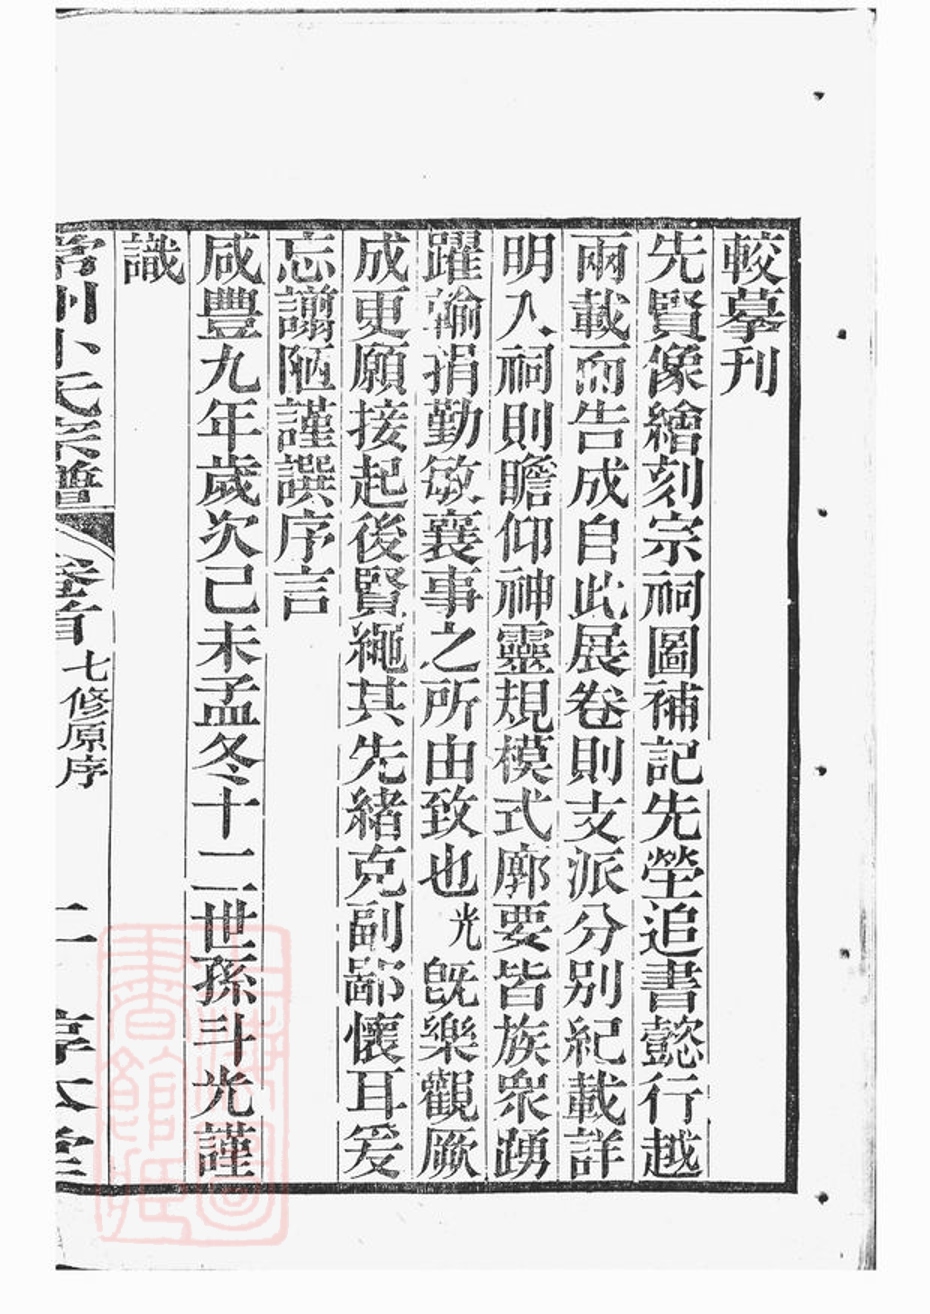 較摹刊
先賢像繪刻宗祠圖補記先塋追書懿行越
兩載而告成自此展卷則支派分別紀載詳
明入祠則瞻仰神靈規模式廓要皆族衆踴
躍輸捐勤敏襄事之所由致也光旣樂觀厥
成更願接起後賢繩其先緒克副鄙懷耳爰
忘譾陋謹譔序言
咸豐九年歲次己未孟冬十二世孫斗光謹
識
氏宗譜 卷首 七修原序 二 堂